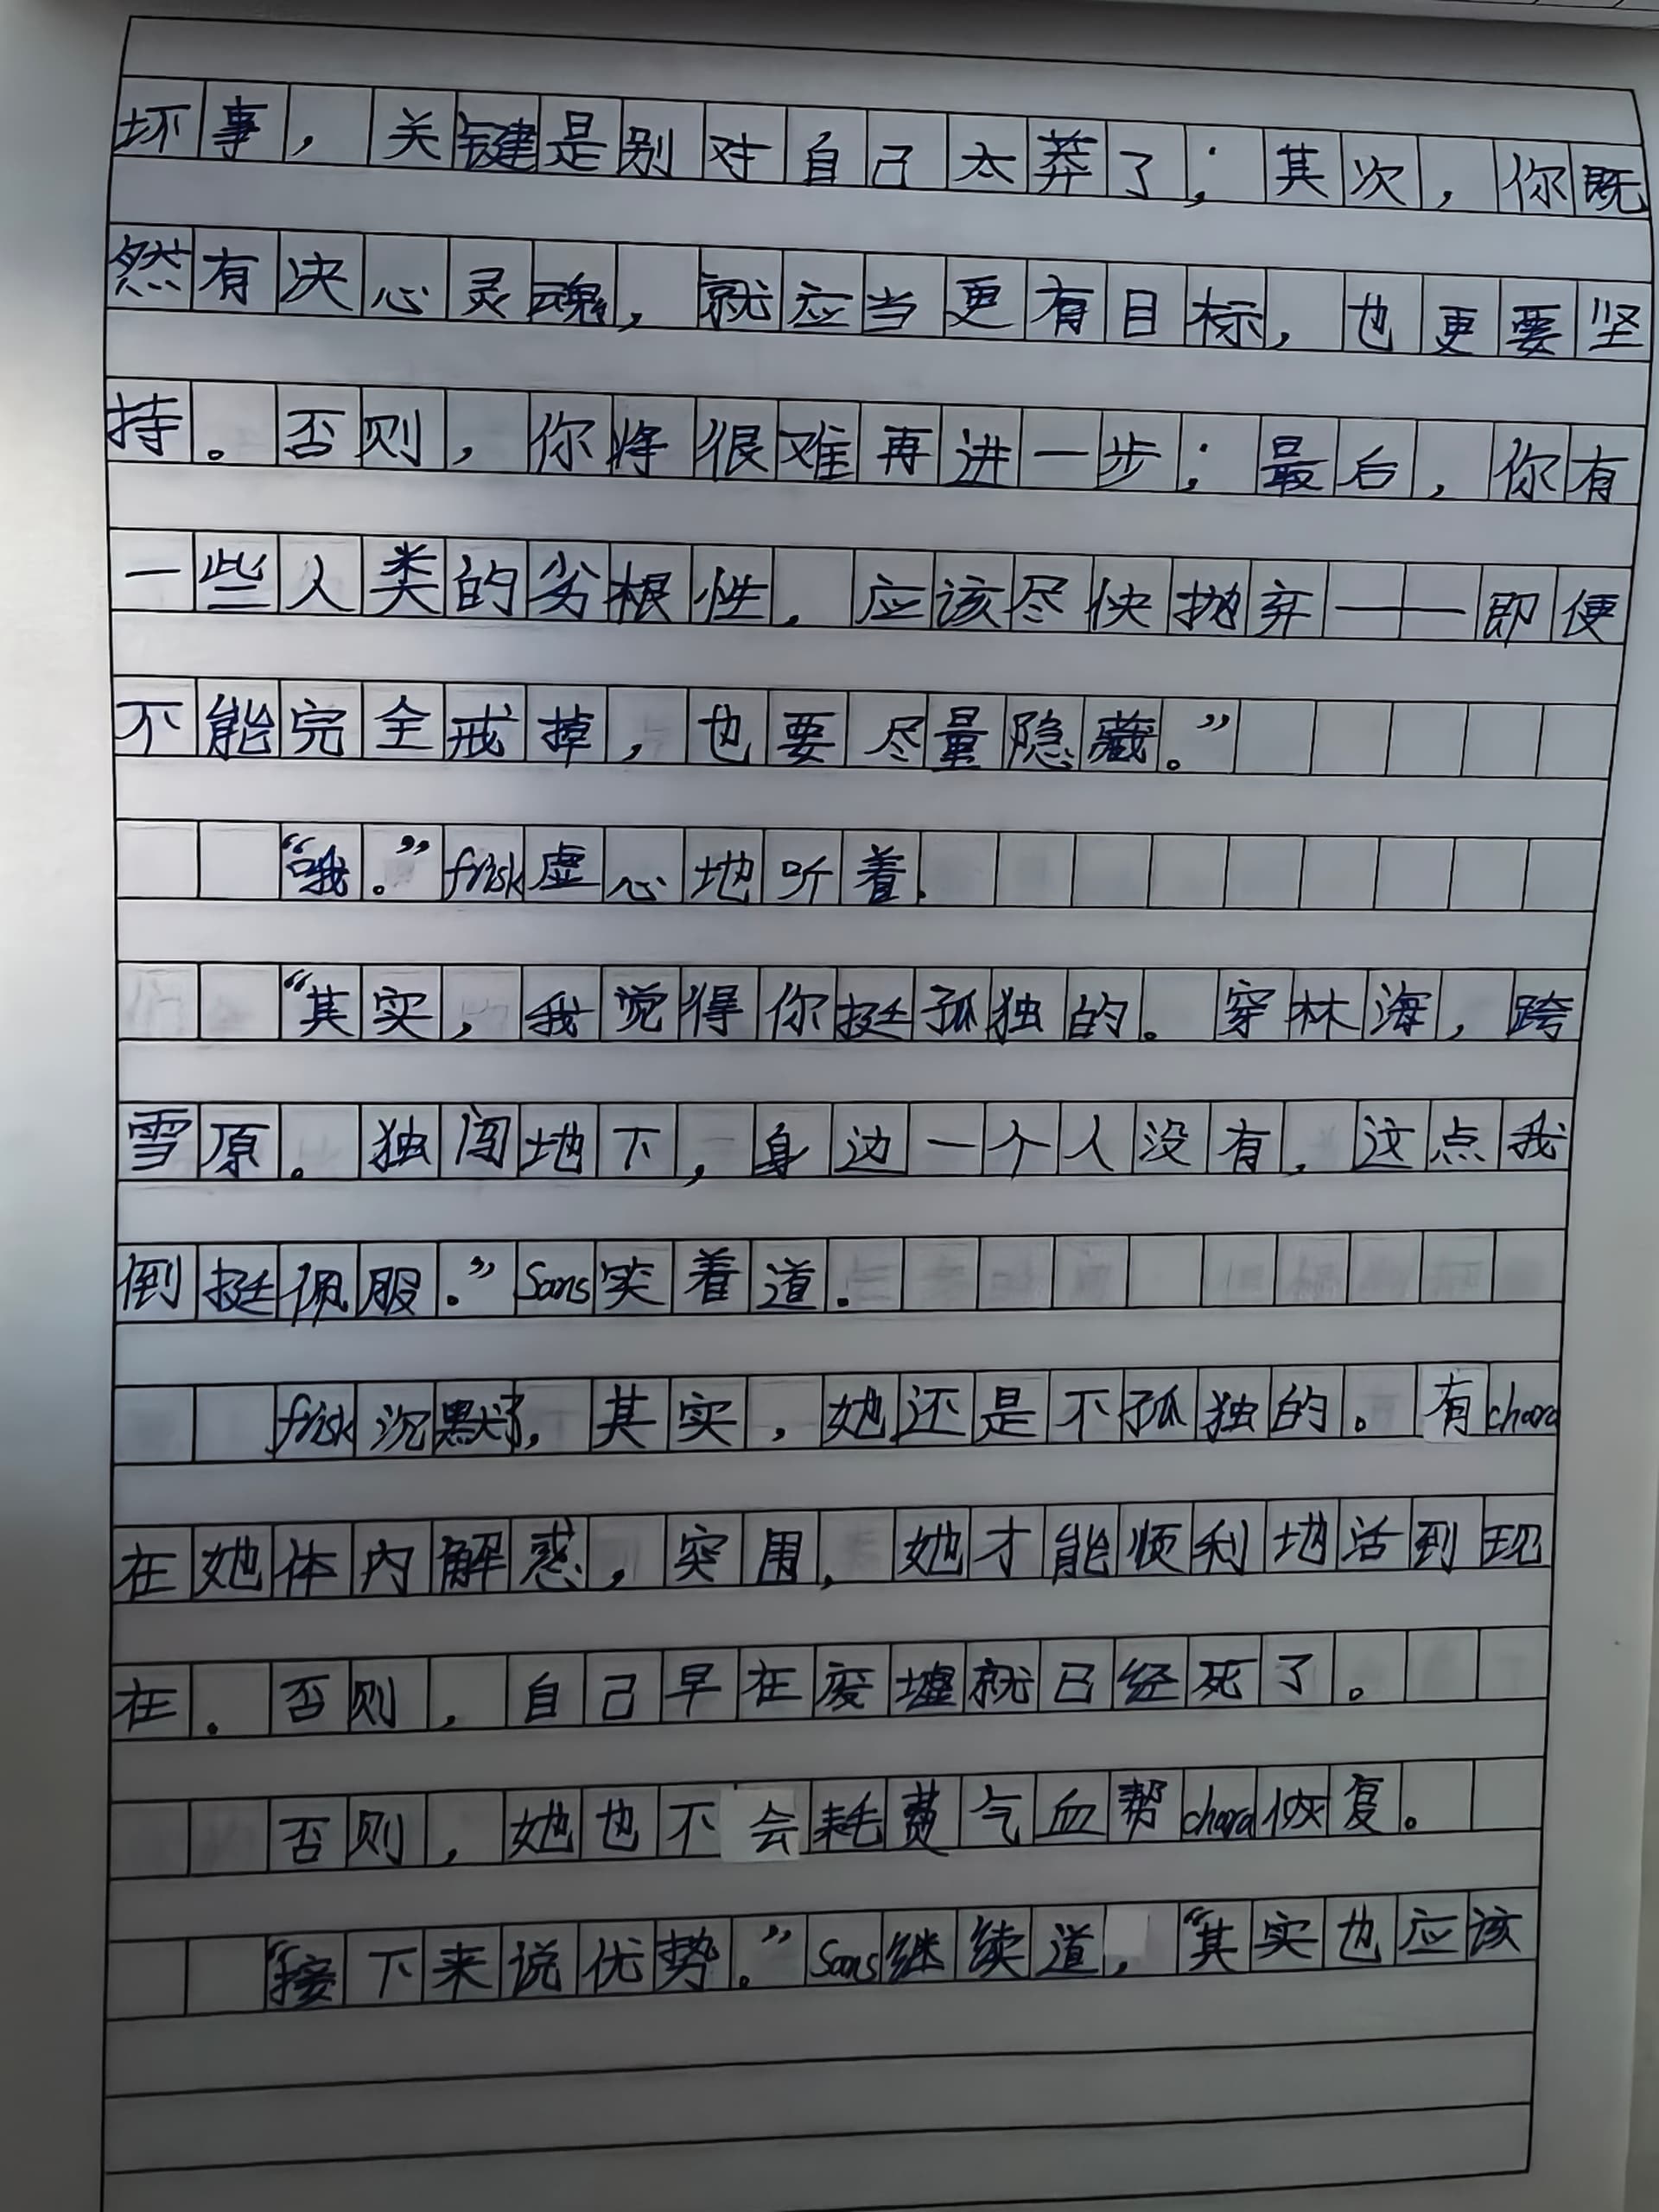 坏事，关键是别对自己太莽了；其次，你既
然有决心灵魂，就应当更有目标，也更要坚
持。否则，你将很难再进一步；最后，你有
一些人类的劣根性，应该尽快抛弃——即便
不能完全戒掉，也要尽量隐藏。”
“哦。”frisk虚心地听着.
“其实，我觉得你挺孤独的。穿林海，跨
雪原。独闯地下，身边一个人没有，这点我
倒挺佩服。”Sans笑着道.
frisk沉默了，其实，她还是不孤独的。有chara
在她体内解惑，突围，她才能顺利地活到现
在.否则，自己早在废墟就已经死了。
否则，她也不会耗费气血帮chara恢复。
“接下来说优势。”Sans继续道，“其实也应该